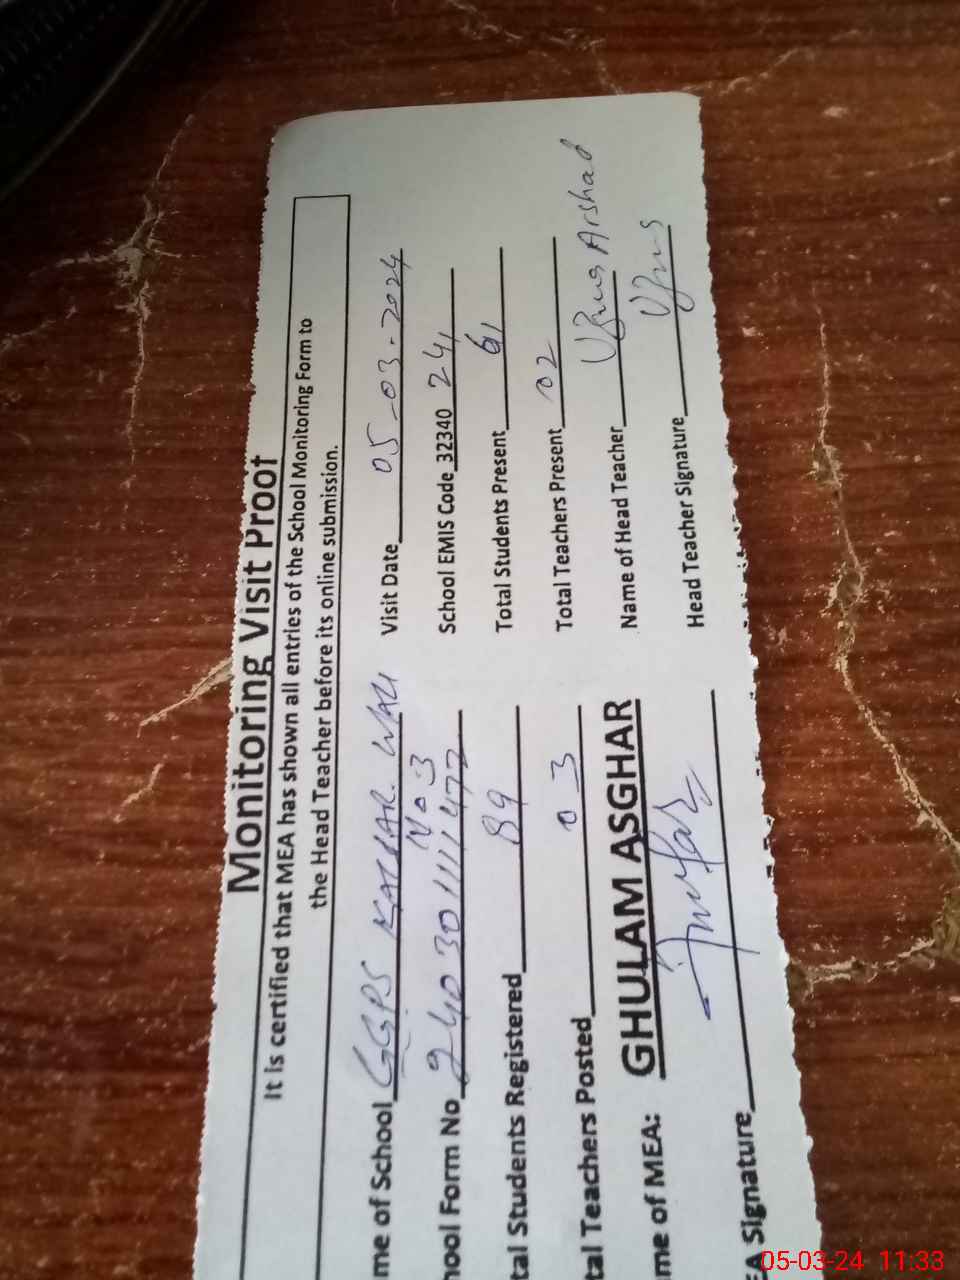 Monitoring Visit Proof
It is certified that MEA has shown all entries of the School Monitoring Form to
the Head Teacher before its online submission.
me of School GGPS No.3 Visit Date 05-03-2024
hool Form No School EMIS Code 32340 241
tal Students Registered 89 Total Students Present 61
tal Teachers Posted 03 Total Teachers Present 02
me of MEA: GHULAM ASGHAR Name of Head Teacher Uzma Arshad
EA Signature Head Teacher Signature Uzma
05-03-24 11:33